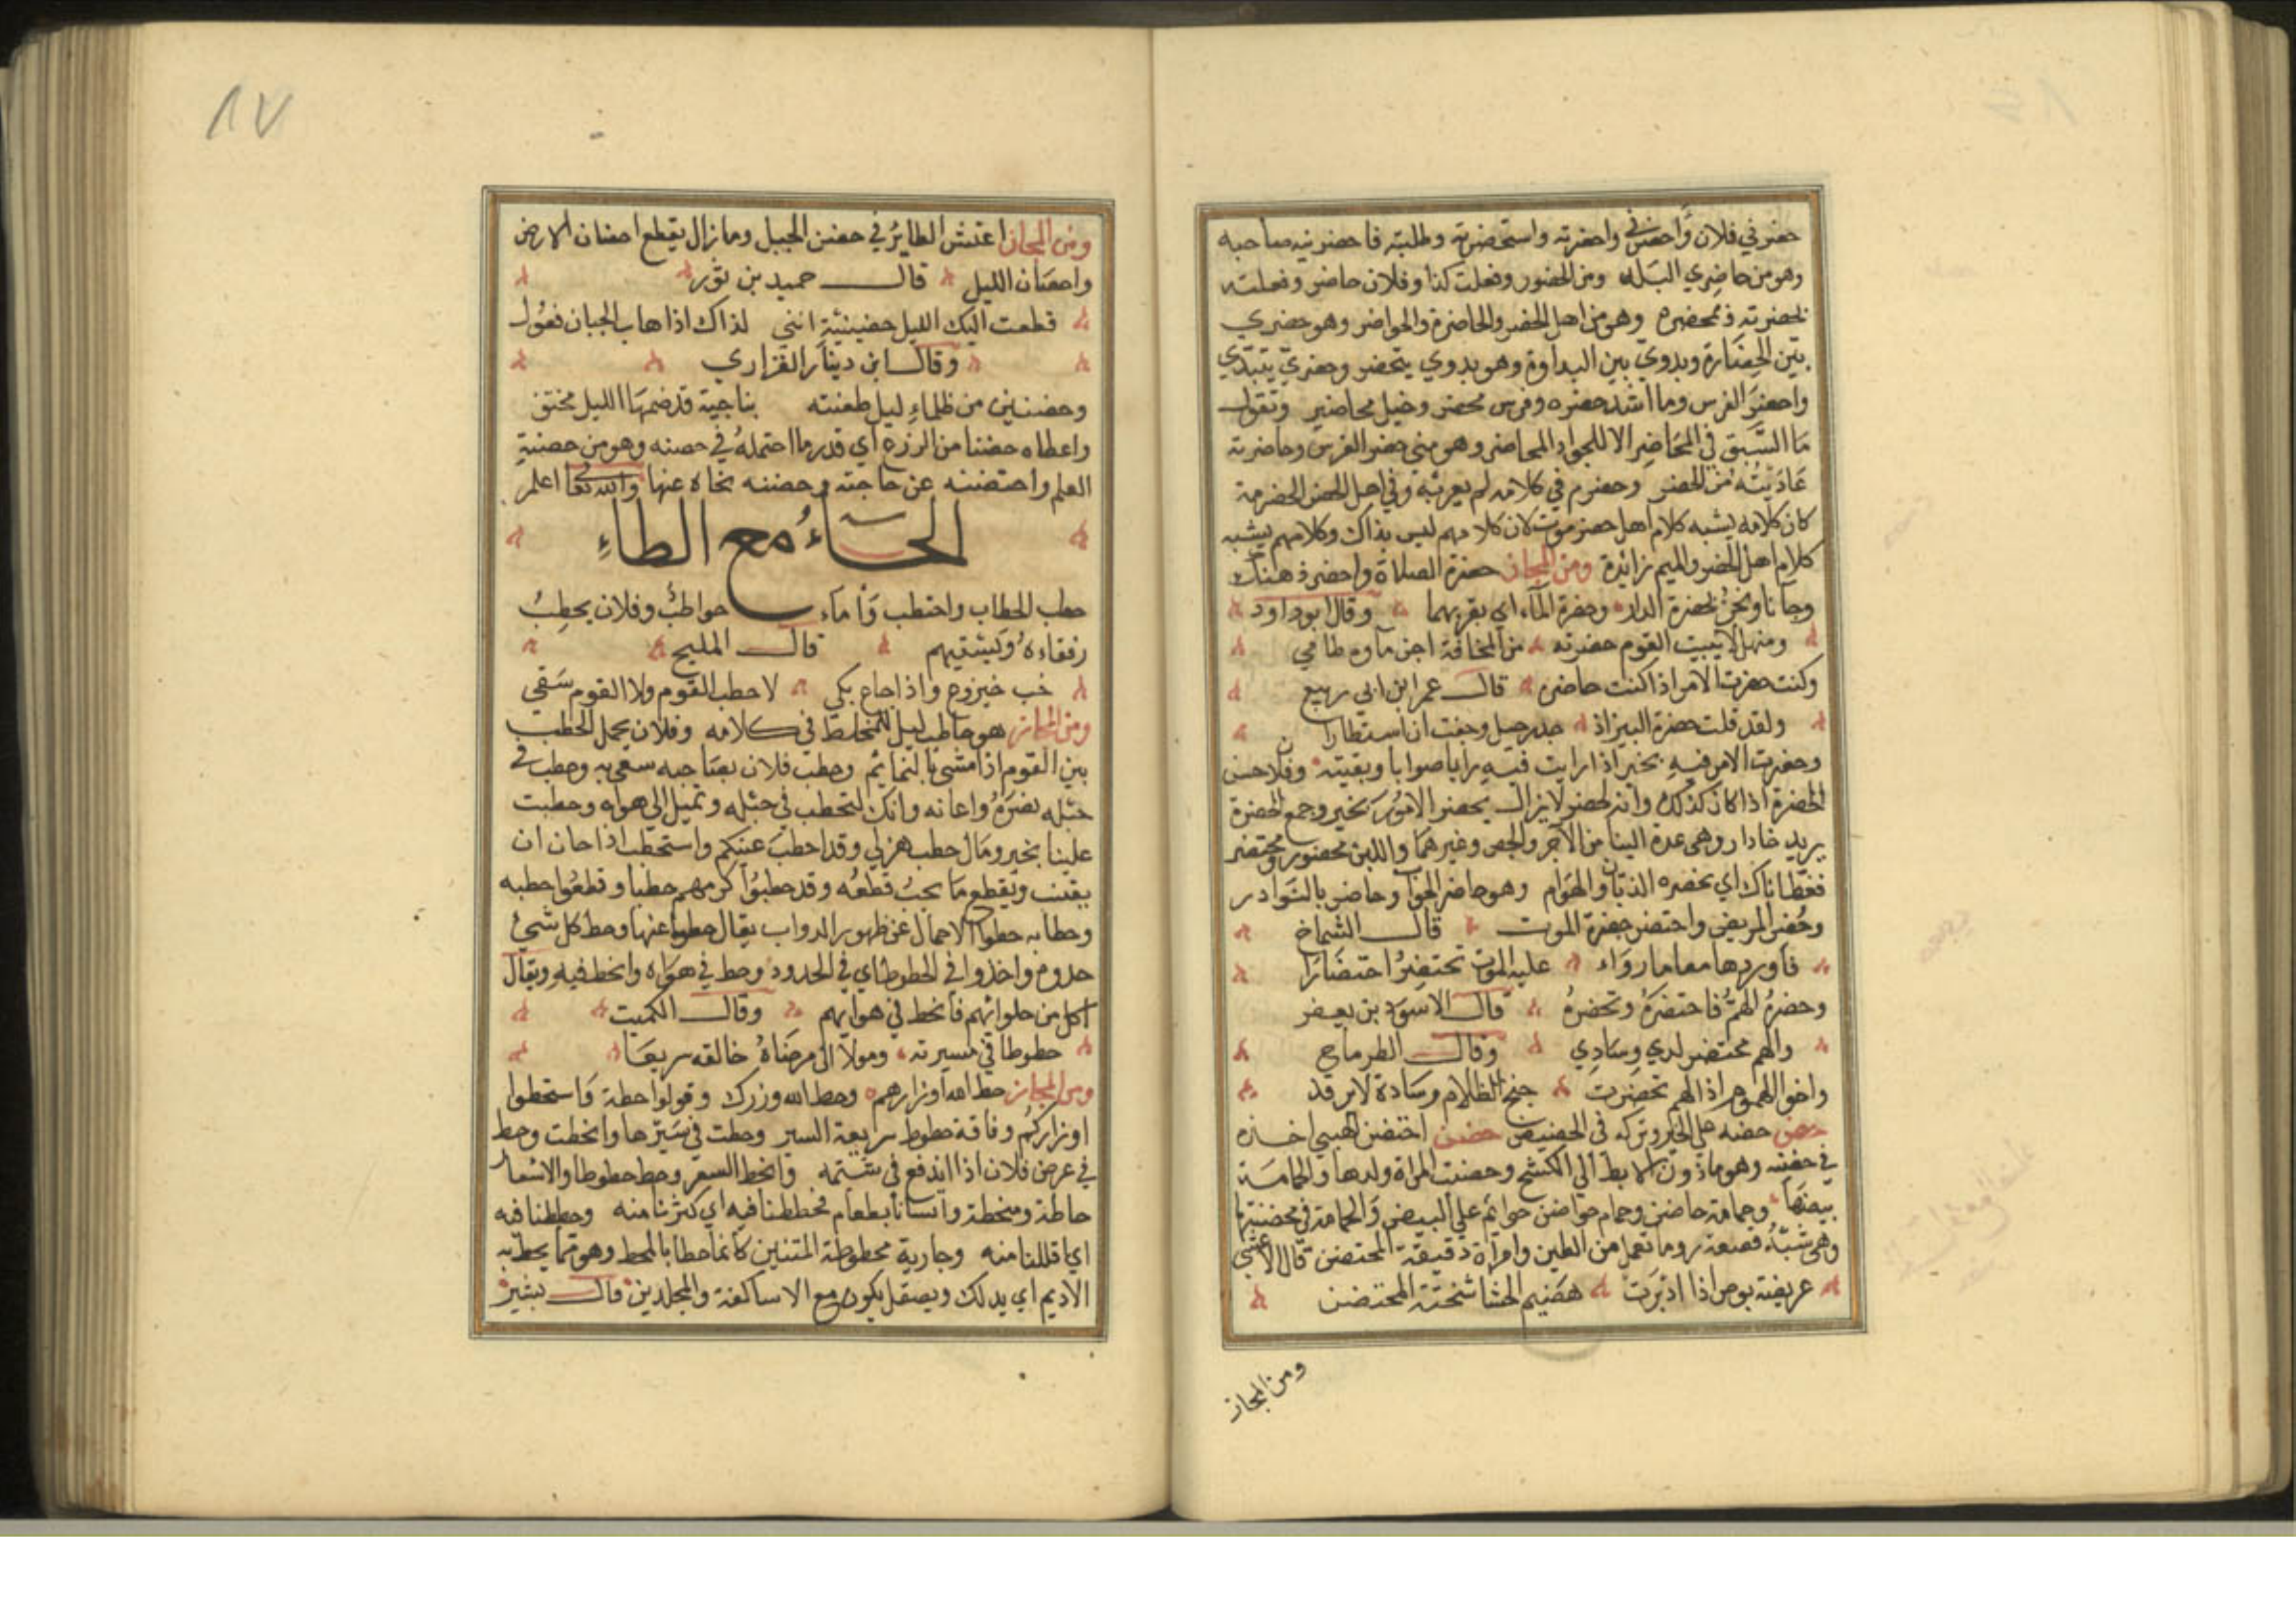 حضرني فلان واحضرني واحضرته واستحضرته وطلبته فاحضرنيه صاحبه
وهو من حاضري البلد ومن الحضور وفعلت كذا وفلان حاضر وفعلته
بحضرته وبمحضره وهو من اهل الحضر والحاضرة والحواضر وهو حضري
بين الحضارة وبدوي بين البداوة وهو بدوي يتحضر وحضري يتبدى
واحضر الفرس وما اشد حضره وفرس محضر وخيل محاضير وتقول
ما السبق في المحاضر الا للجواد المحاضر وهو مني حضر الفرس وحاضرته
عاديته من الحضر وحضرم في كلامه لم يعربه وفي اهل الحضر الحضرمة
كان كلامه يشبه كلام اهل حضرموت لان كلامهم ليس بذاك وكلامهم يشبه
كلام اهل الحضر والميم زائدة ومن المجاز حضرة الصلاة واحضر ذهنك
وجانا ونحن بحضرة الدار وحضرة الماء اي بقربهما وقال ابو داود
ومنهل لا يبيت القوم حضرته من المخافة اجن ماوه طامي
وكنت حضرت الامر اذا كنت حاضره قال عمر ابن ابي ربيع
ولقد قلت حضرة البين اذ جد رحيل وخفت ان استطارا
وحضرت الامر فيه بخير اذا رايت فيه رايا صوابا وبقيته وفلان حسن
الحضرة اذا كان كذلك وانه لحضر لا يزال يحضر الامور بخير وجمع الحضرة
يريد بناء دار وهي عدة البنا من الآجر والجص وغيرهما واللبن محضور ومحتضر
فغط اناك اي يحضره الذبان والهوام وهو حاضر الجواب وحاضر بالنوادر
وحضر المريض واحتضر حضرة الموت قال الشماخ
فاوردها معا ماء رواء عليه الموت تحتضر احتضارا
وحضره الهم فاحتضره وتحضره قال الاسود بن يعفر
والهم محتضر لدي وسادي وقال الطرماح
واخو الهموم اذا الهم تحضرت جنح الظلام وساده لا يرقد
حضض حضه علي الخير وتركه في الحضيض حضن احتضن الصبي اخذه
في حضنه وهو ما دون الابط الي الكشح وحضنت المراة ولدها والحمامة
بيضها وحمامة حاضن وحمام حواضن جواثم علي البيض والحمامة في محضنتها
وهي شبه قصعة روحا تعمل من الطين وامراة دقيقة المحتضن قال الاعشى
عريضة بوص اذا ادبرت هضيم الحشا شختة المحتضن
ومن المجاز
٨٧
ومن المجاز اعتش الطاير في حضن الجبل وما زال يقطع احضان الارض
واحضان الليل قال حميد بن ثور
قطعت اليك الليل حضينيه انني لذاك اذا هاب الجبان فعول
وقال ابن دينار الفزاري
وحضنين من ظلماء ليل طعنته بناجية قد ضمها الليل مخنق
واعطاه حضنا من الزرع اي قدر ما احتمله في حضنه وهو من حضنة
العلم واحتضنه عن حاجته وحضنه نحاه عنها والله تعا اعلم
الحاء مع الطاء
حطب الحطاب واحتطب واماء حواطب وفلان يحطب
رفقاءه ويسقيهم قال المليح
خب جزوع واذا جاع بكي لا حطب القوم ولا القوم سقي
ومن المجاز هو حاطب ليل للمخلط في كلامه وفلان يحمل الحطب
بين القوم اذا مشى بالنمائم وحطب فلان بصاحبه سعي به وحطب في
حبله نصره واعانه وانك لتحطب في حبله وتميل الي هواه وحطبت
علينا بخير ومال حطب هزلي وقد احطب عنبكم واستحطب اذا حان ان
يقنب ويقطع ما يجب قطعه وقد حطبوا كرمهم حطبا وقطعوا حطبه
وحطابه حطوا الاحمال عن ظهور الدواب يقال حطوا عنها وحط كل شيئ
حدره واخذوا في الحطوط اي في الحدور وحط في هواه وانحط فيه ويقال
اكل من حلوائهم فانحط في هوايهم وقال الكميت
حطوطا في مسيرته ومولا الى مرضاة خالقه سريعا
ومن المجاز حط الله اوزارهم وحط الله وزرك وقولوا حطة واستحطوا
اوزاركم وناقة حطوط سريعة السير وحطت في سيرها وانحطت وحط
في عرض فلان اذا اندفع في شتمه وانحط السعر وحط حطوطا والاسعار
حاطة ومنحطة واتانا بطعام فحططنا فيه اي كثرنا منه وحططنا فيه
اي اقللنا منه وجارية محطوطة المتنين كانما حطا بالمحط وهو ما يحط به
الاديم اي يدلك ويصقل يكون مع الاساكفة والمجلدين قال بشير